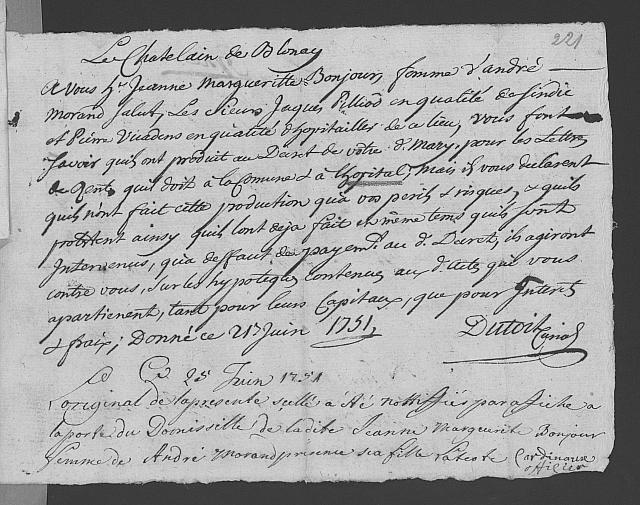 221
Le Chatelain de Blonay
A Vous hte Jeanne Margueritte Bonjour, femme d'andré
morand Salut, Les Sieurs Jaques Pilliod en qualité de Sindic
et Pierre Vuadens en qualité d'hopitailler de ce lieu, vous font
Savoir quils ont produit au Decret de votre d. Mary, pour les Lettres
de Rente quil doit à la Comune & à Lhopital, mais ils vous declarent
quils n'ont fait cette production qua vos perils & risques, & quils
protestent ainsy quils l'ont deja fait en même tems quils sont
Intervenus, qua deffaut de payemt. au d. Decret, ils agiront
contre vous, Sur les hypoteques contenues aux d. Actes qui vous
apartienent, tant pour leurs Capitaux, que pour Interet
& fraix; Donné ce 21e Juin 1751,
Dutoit Curial
Le Ce 25 Juin 1751
L'original de la presente sellé a été nottiffiés par affiche a
la porte du Domissille de la dite Jeanne Marguerit Bonjour
femme de André Morand presence sa fille l'ateste Cardinaux
officier